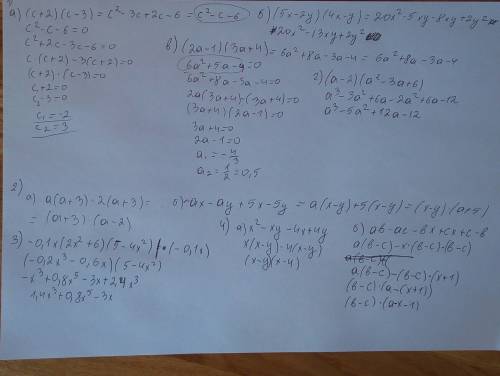 1)
а) (c+2)(c-3) = c²-3c+2c-6 = c²-c-6
c²-c-6=0
c²+2c-3c-6=0
c·(c+2)-3(c+2)=0
(c+2)·(c-3)=0
c+2=0
c-3=0
c₁=-2
c₂=3
б) (5x-2y)(4x-y) = 20x²-5xy-8xy+2y²=
20x²-13xy+2y²
в) (2a-1)(3a+4) = 6a²+8a-3a-4 = 6a²+8a-3a-4
6a²+5a-4=0
6a²+8a-3a-4=0
2a(3a+4)-(3a+4)=0
(3a+4)(2a-1)=0
3a+4=0
2a-1=0
a₁=-4/3
a₂=1/2=0,5
г) (a-2)(a²-3a+6)
a³-3a²+6a-2a²+6a-12
a³-5a²+12a-12
2)
а) a(a+3)-2(a+3)=
=(a+3)·(a-2)
б) ax-ay+5x-5y = a(x-y)+5(x-y)=(x-y)(a+5)
3) -0,1x(2x²+6)(5-4x²)
(-0,2x³-0,6x)(5-4x²)
-x³+0,8x⁵-3x+2,4x³
1,4x³+0,8x⁵-3x
4) а) x²-xy-4x+4y
x(x-y)-4(x-y)
(x-y)(x-4)
б) ab-ac-bx+cx+c-b
a(b-c)-x·(b-c)-(b-c)
a(b-c)-(b-c)·(x+1)
(b-c)·(a-(x+1))
(b-c)·(a-x-1)